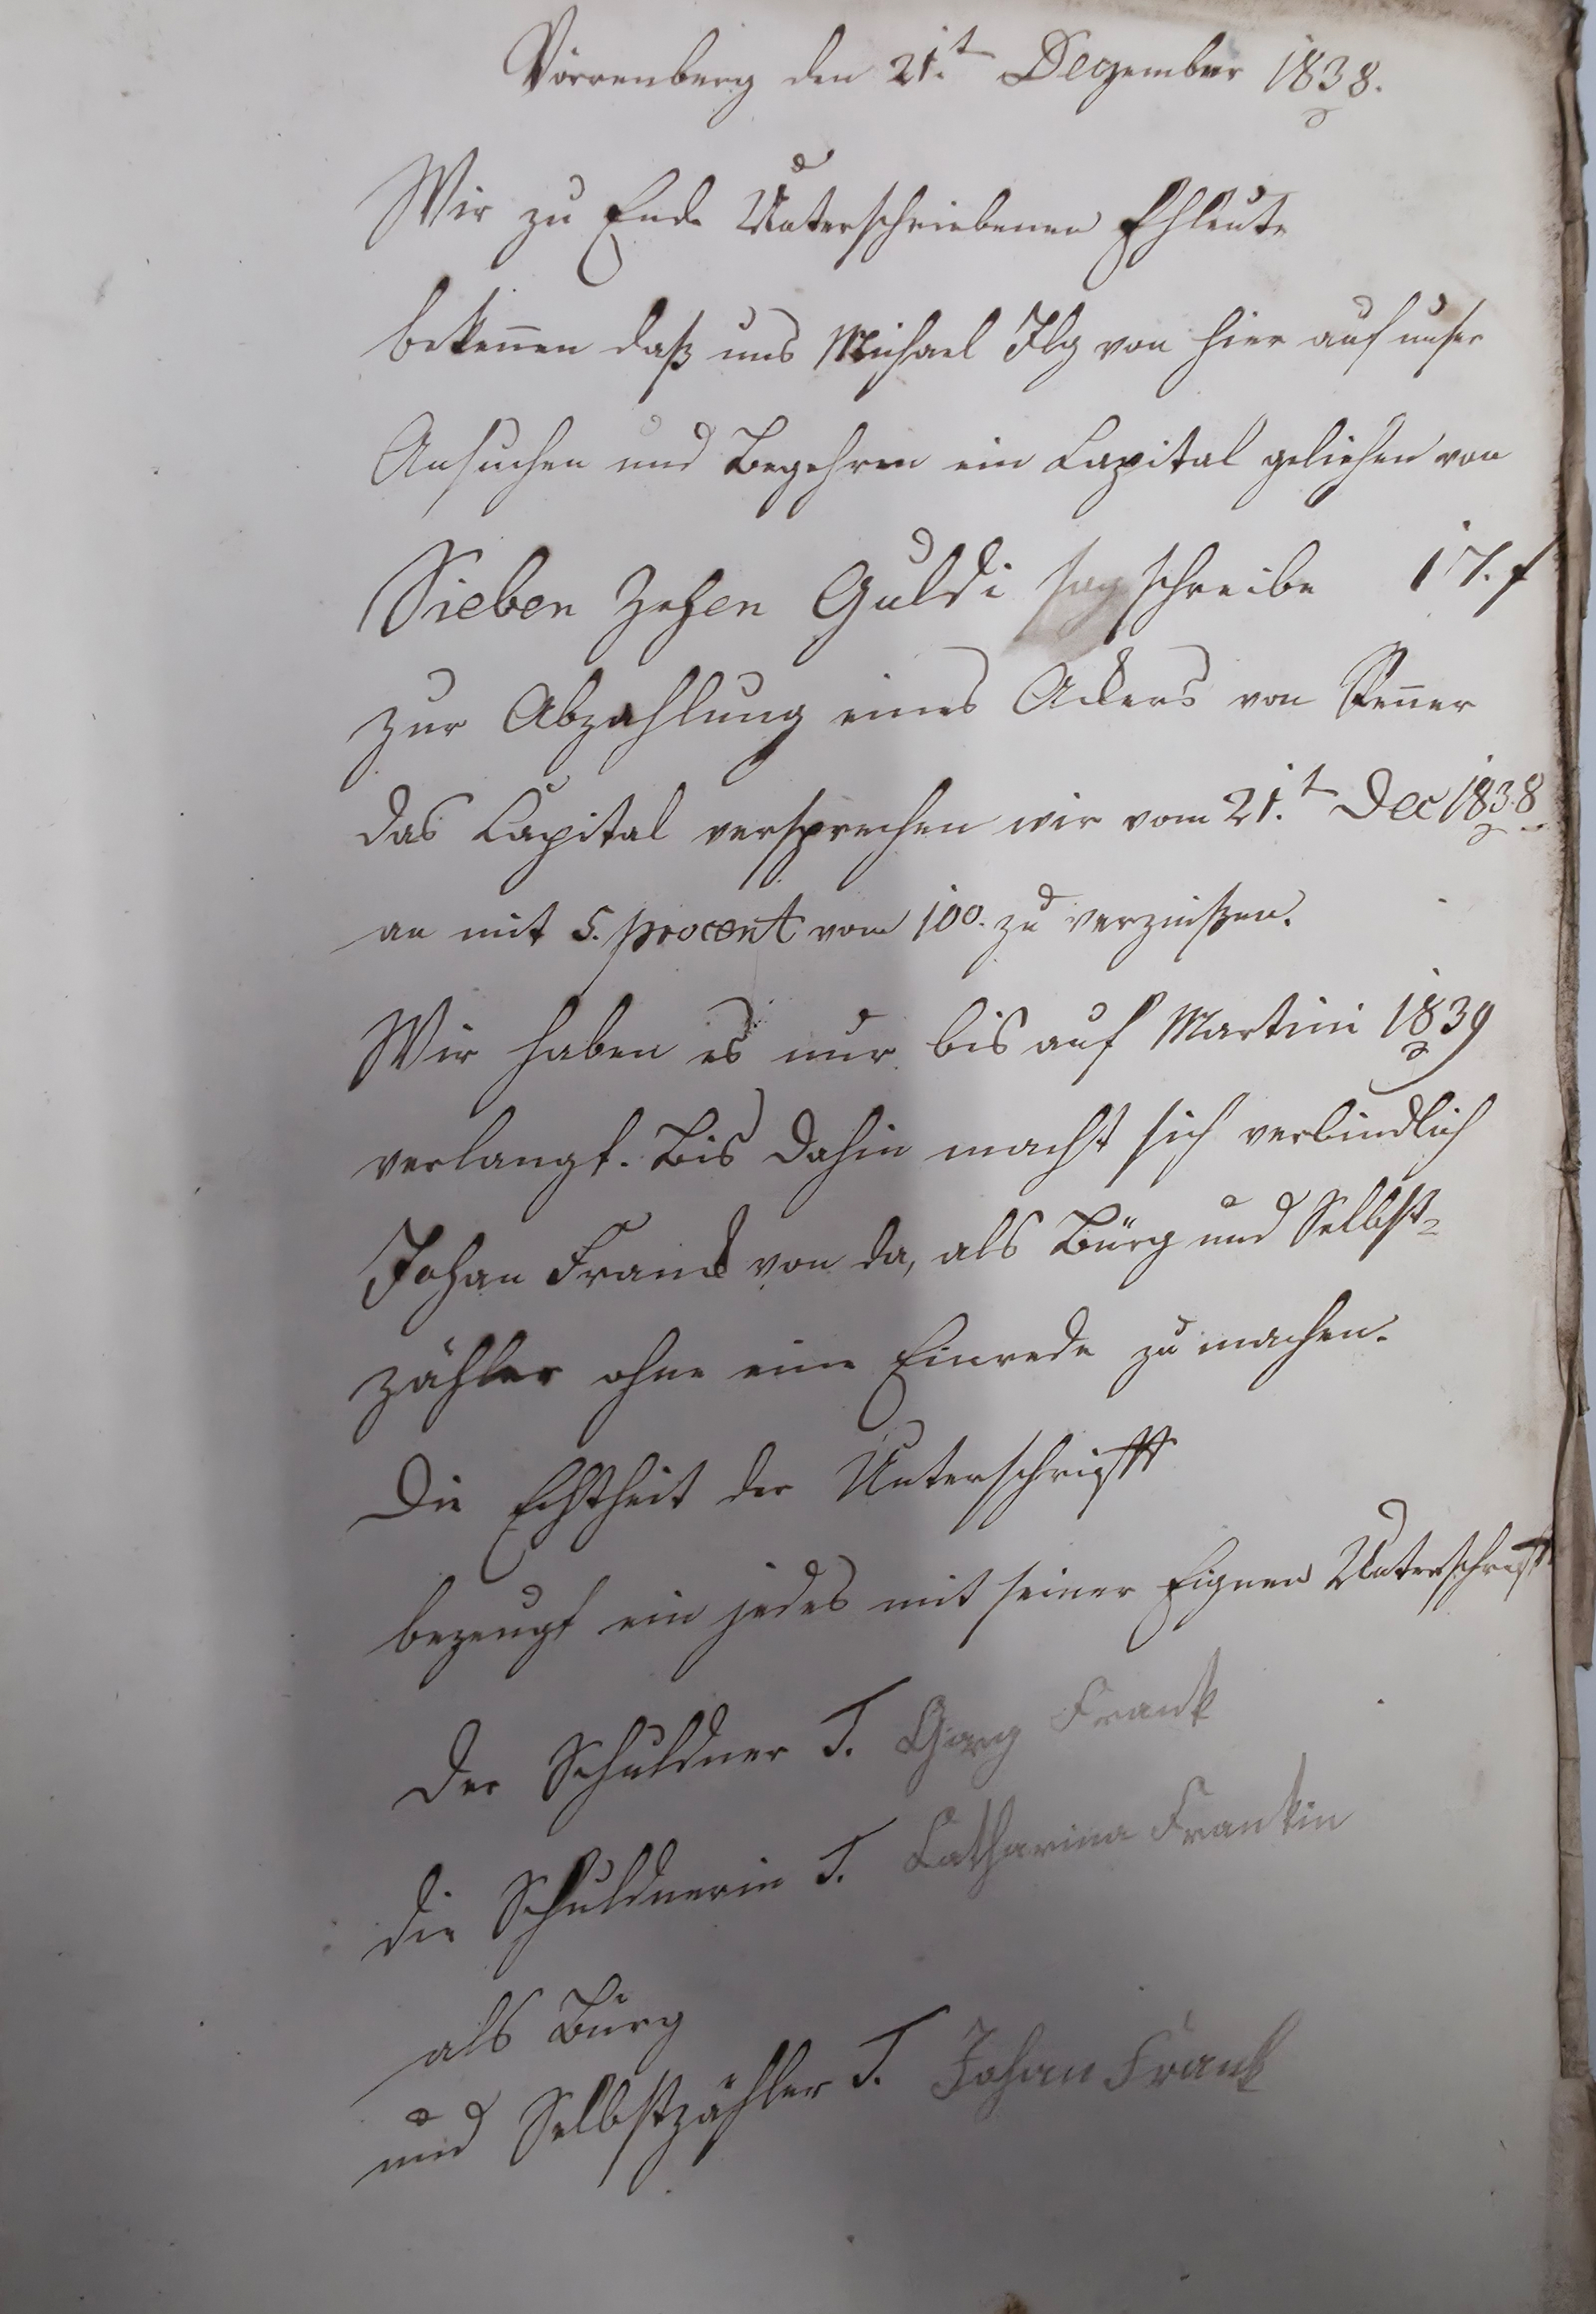 Vörrenberg den 21.t Dezember 1838.
Wir zu Ende Unterschriebenen Ehleute
bekennen daß uns Michael Ilg von hier auf unser
Ansuchen und Begehren ein Capital geliehen von
Sieben Zehen Guldi sag schreibe 17. f
zur Abzahlung eines Ackers von Renner
das Capital versprechen wir vom 21.t Dec 1838
an mit 5. procent vom 100. zu verzinßen.
Wir haben es nur bis auf Martini 1839
verlangt. Bis dahin macht sich verbindlich
Johan Franck von da, als Bürg und Selbst-
zähler ohne eine Einrede zu machen.
Die Echtheit der Unterschrifft
bezeugt ein jedes mit seiner Eignen Unterschrift
Der Schuldner T. Georg Frank
die Schuldnerin T. Catharina Frankin
als Bürg
und Selbstzähler T. Johan Frank